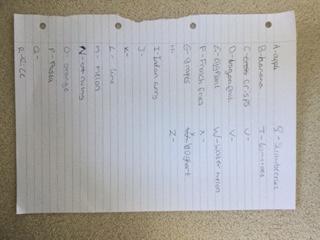 A-apple
B-banana
C-crisps
D-Dragon fruit
E-Eggfruit
F-French fries
G-grapes
H-
I-Indian corns
J-
K-
L-lime
M-melon
N-
O-orange
P-Pasta
Q-
R-Rice
S-Strawberries
T-tomatoes
U-
V-
W-Water melon
X-
Yoghurt
Z-